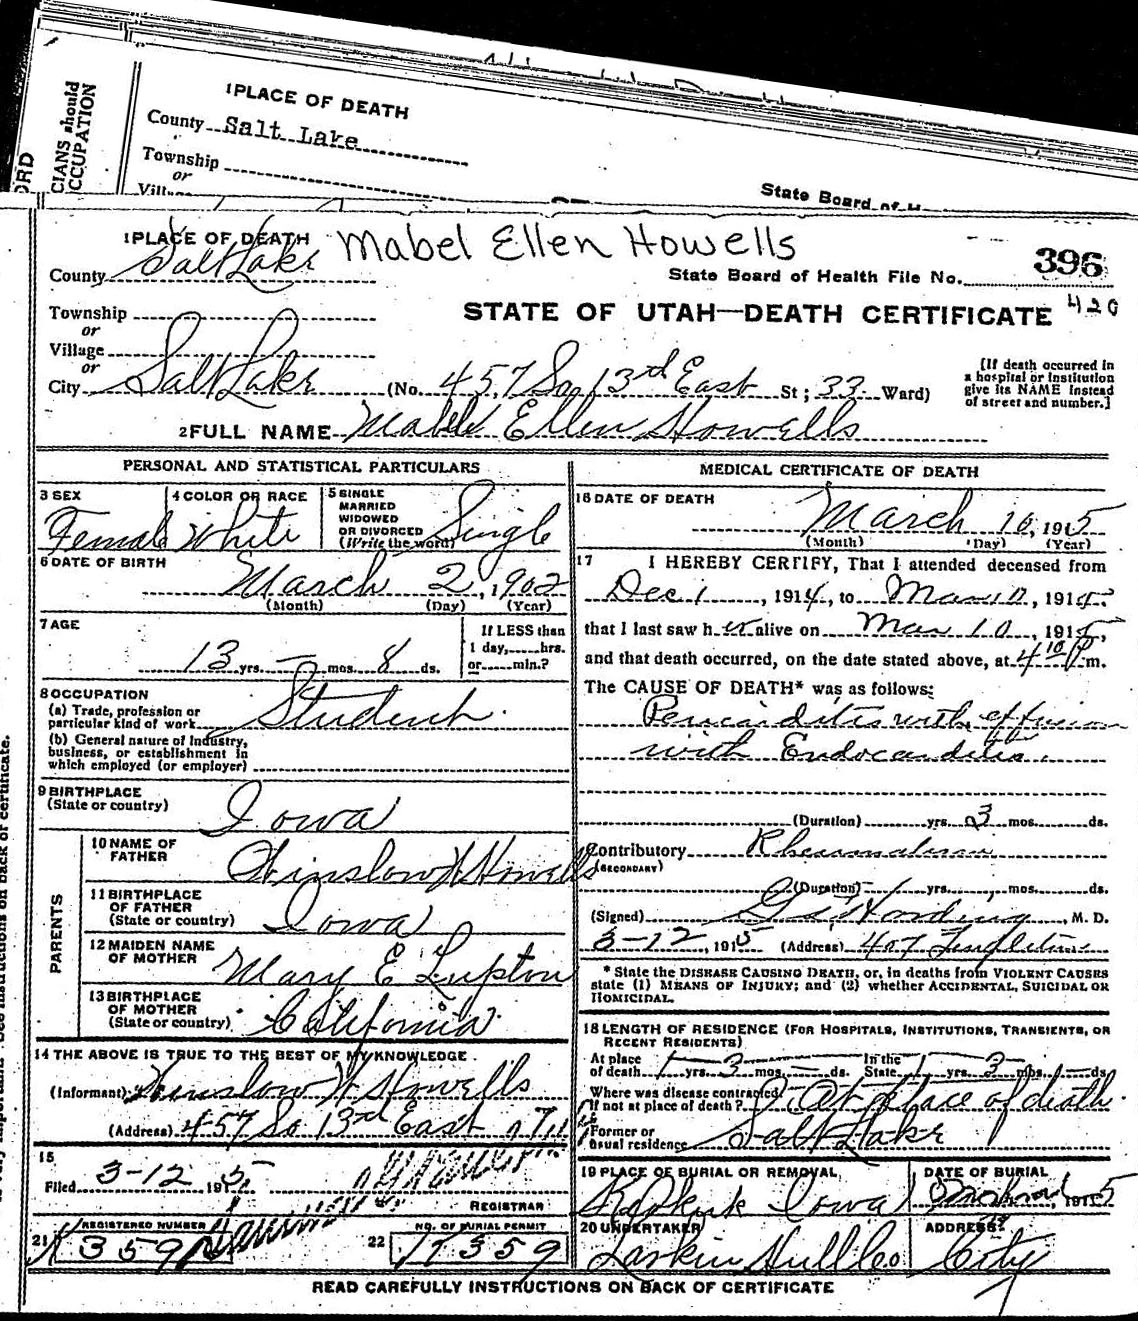 CIANS should
CCUPATION
ORD
1 PLACE OF DEATH
County Salt Lake
Township
or
Villa
State Board of H
1 PLACE OF DEATH Mabel Ellen Howells
County Salt Lake
State Board of Health File No. 396
Township
or
Village
or
STATE OF UTAH—DEATH CERTIFICATE 420
City Salt Lake (No. 457 So 13rd East St; 33 Ward)
[If death occurred in
a hospital or institution
give its NAME instead
of street and number.]
2 FULL NAME Mabel Ellen Howells
PERSONAL AND STATISTICAL PARTICULARS
3 SEX
Female
4 COLOR OR RACE
White
5 SINGLE
MARRIED
WIDOWED
OR DIVORCED
(Write the word)
Single
6 DATE OF BIRTH
March 2, 1902
(Month) (Day) (Year)
7 AGE
13 yrs. — mos. 8 ds.
If LESS than
1 day, hrs.
or min.?
8 OCCUPATION
(a) Trade, profession or
particular kind of work Student
(b) General nature of Industry,
business, or establishment in
which employed (or employer)
9 BIRTHPLACE
(State or country)
Iowa
PARENTS
10 NAME OF
FATHER
Winslow W Howells
11 BIRTHPLACE
OF FATHER
(State or country)
Iowa
12 MAIDEN NAME
OF MOTHER
Mary E Lupton
13 BIRTHPLACE
OF MOTHER
(State or country)
California
14 THE ABOVE IS TRUE TO THE BEST OF MY KNOWLEDGE
(Informant) Winslow W Howells
(Address) 457 So 13rd East
15
Filed 3-12 1915
REGISTRAR
21 REGISTERED NUMBER
359
22 NO. OF BURIAL PERMIT
359
MEDICAL CERTIFICATE OF DEATH
16 DATE OF DEATH
March 10, 1915
(Month) (Day) (Year)
17 I HEREBY CERTIFY, That I attended deceased from
Dec 1, 1914, to Mar 10, 1915
that I last saw her alive on Mar 10, 1915,
and that death occurred, on the date stated above, at 4 10 P m.
The CAUSE OF DEATH* was as follows:
Pericarditis with effusion
with Endocarditis
(Duration) yrs. 3 mos. ds.
Contributory Rheumatism
(SECONDARY)
(Duration) 1 yrs. mos. ds.
(Signed) Harding, M. D.
3-12, 1915 (Address) 407 Templeton
* State the DISEASE CAUSING DEATH, or, in deaths from VIOLENT CAUSES
state (1) MEANS OF INJURY; and (2) whether ACCIDENTAL, SUICIDAL OR
HOMICIDAL.
18 LENGTH OF RESIDENCE (FOR HOSPITALS, INSTITUTIONS, TRANSIENTS, OR
RECENT RESIDENTS)
At place
of death 1 yrs. 3 mos. — ds.
In the
State 1 yrs. 3 mos. — ds.
Where was disease contracted,
if not at place of death? At place of death.
Former or
usual residence Salt Lake
19 PLACE OF BURIAL OR REMOVAL
Keokuk Iowa
DATE OF BURIAL
1915
20 UNDERTAKER
Larkin Hull Co
ADDRESS
City
READ CAREFULLY INSTRUCTIONS ON BACK OF CERTIFICATE